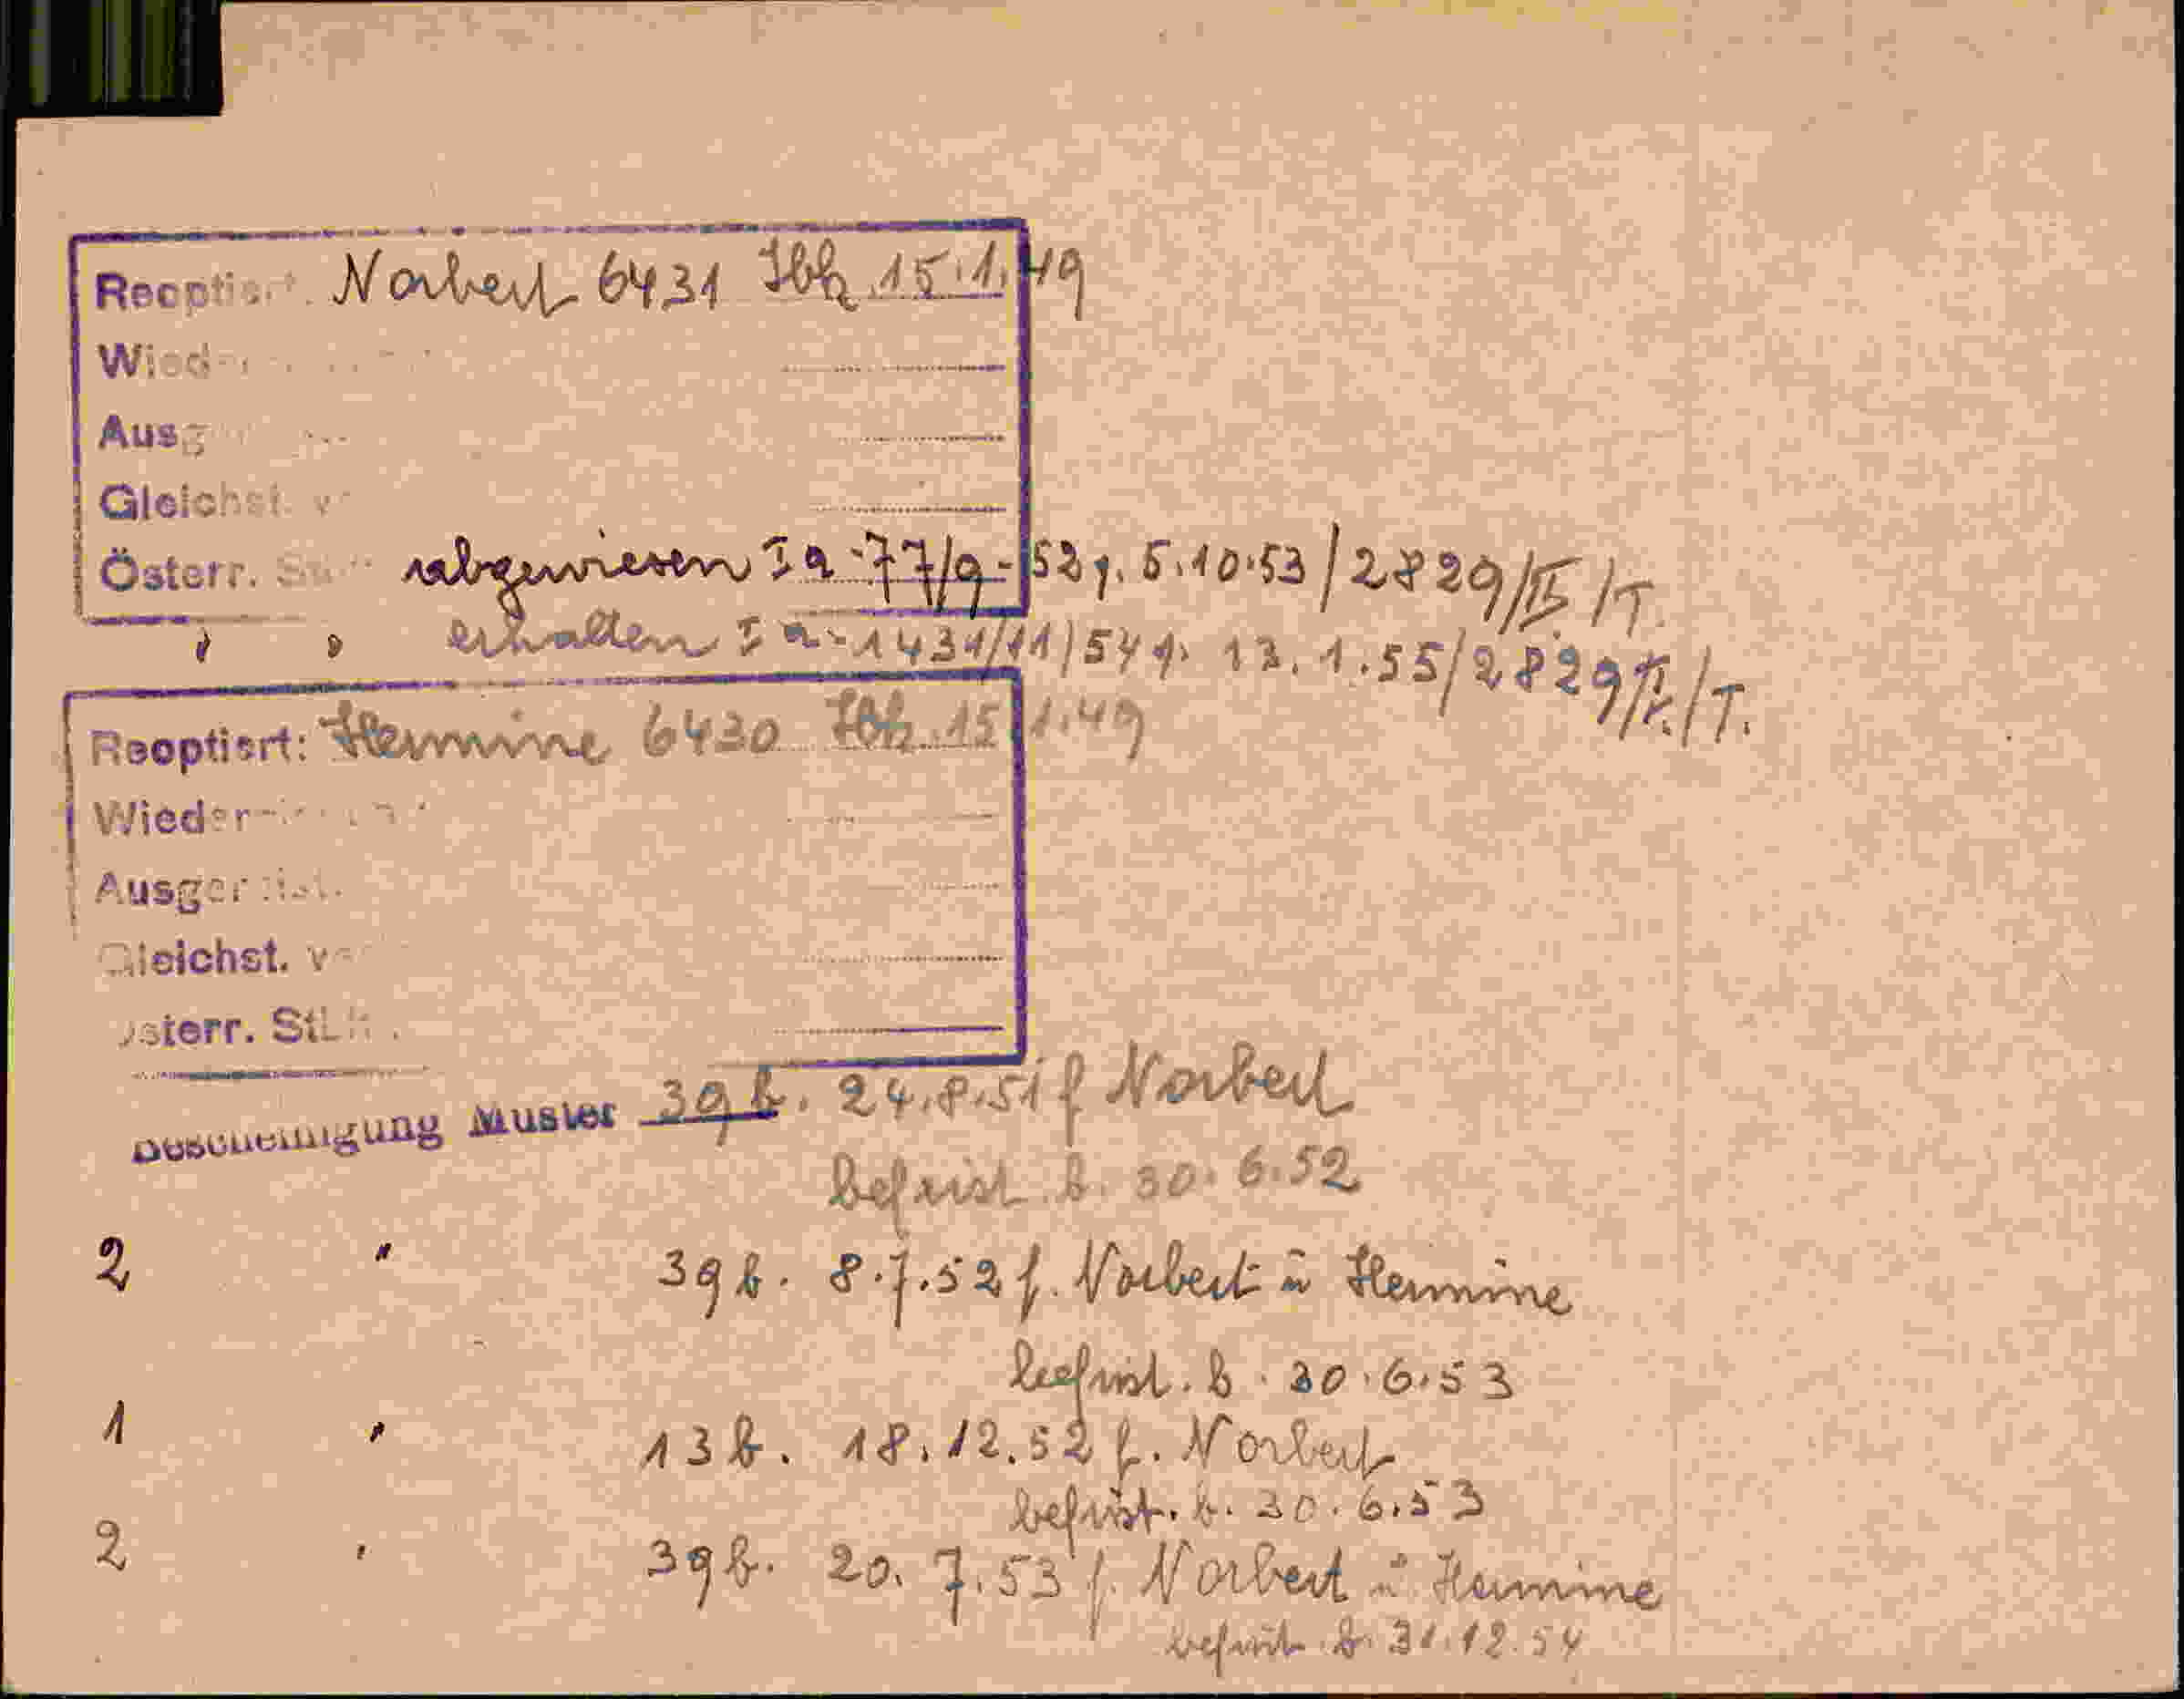 Reoptiert: Norbert 6431 Ibk. 15.1.49
Wied
Ausg
Gleichst. v
Österr. abgewiesen Ia-77/9-52 v. 5.10.53/2829/II/T.
" " erhalten Ia-1431/11/54 v. 13.1.55/2829/II./T.
Reoptiert: Hermine 6430 Ibk. 15.1.49
Wieder
Ausger
Gleichst. v
Österr. Stb
Bescheinigung Muster 39b. 24.8.51 f Norbert
befrist. b. 30.6.52
2 " 39b. 8.7.52 f. Norbert u Hermine
befrist. b. 30.6.53
1 " 13b. 18.12.52 f. Norbert
befrist. b. 30.6.53
2 " 39b. 20.7.53 f. Norbert u Hermine
befrist b. 31.12.54